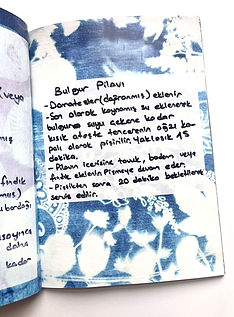 (veya
mış
fındık
mış)
u bardağı
soyması
daha
kadar
Bulgur Pilavı
- Domatesler (doğranmış) eklenir
- Son olarak kaynamış su eklenerek
bulgurun suyu çekene kadar
kısık ateşte tencerenin ağzı ka-
palı olarak pişirilir. Yaklaşık 15
dakika.
- Pilavın içerisine tavuk, badem veya
fıstık eklenir. Pişmeye devam eder.
- Piştikten sonra 20 dakika bekletilerek
servis edilir.